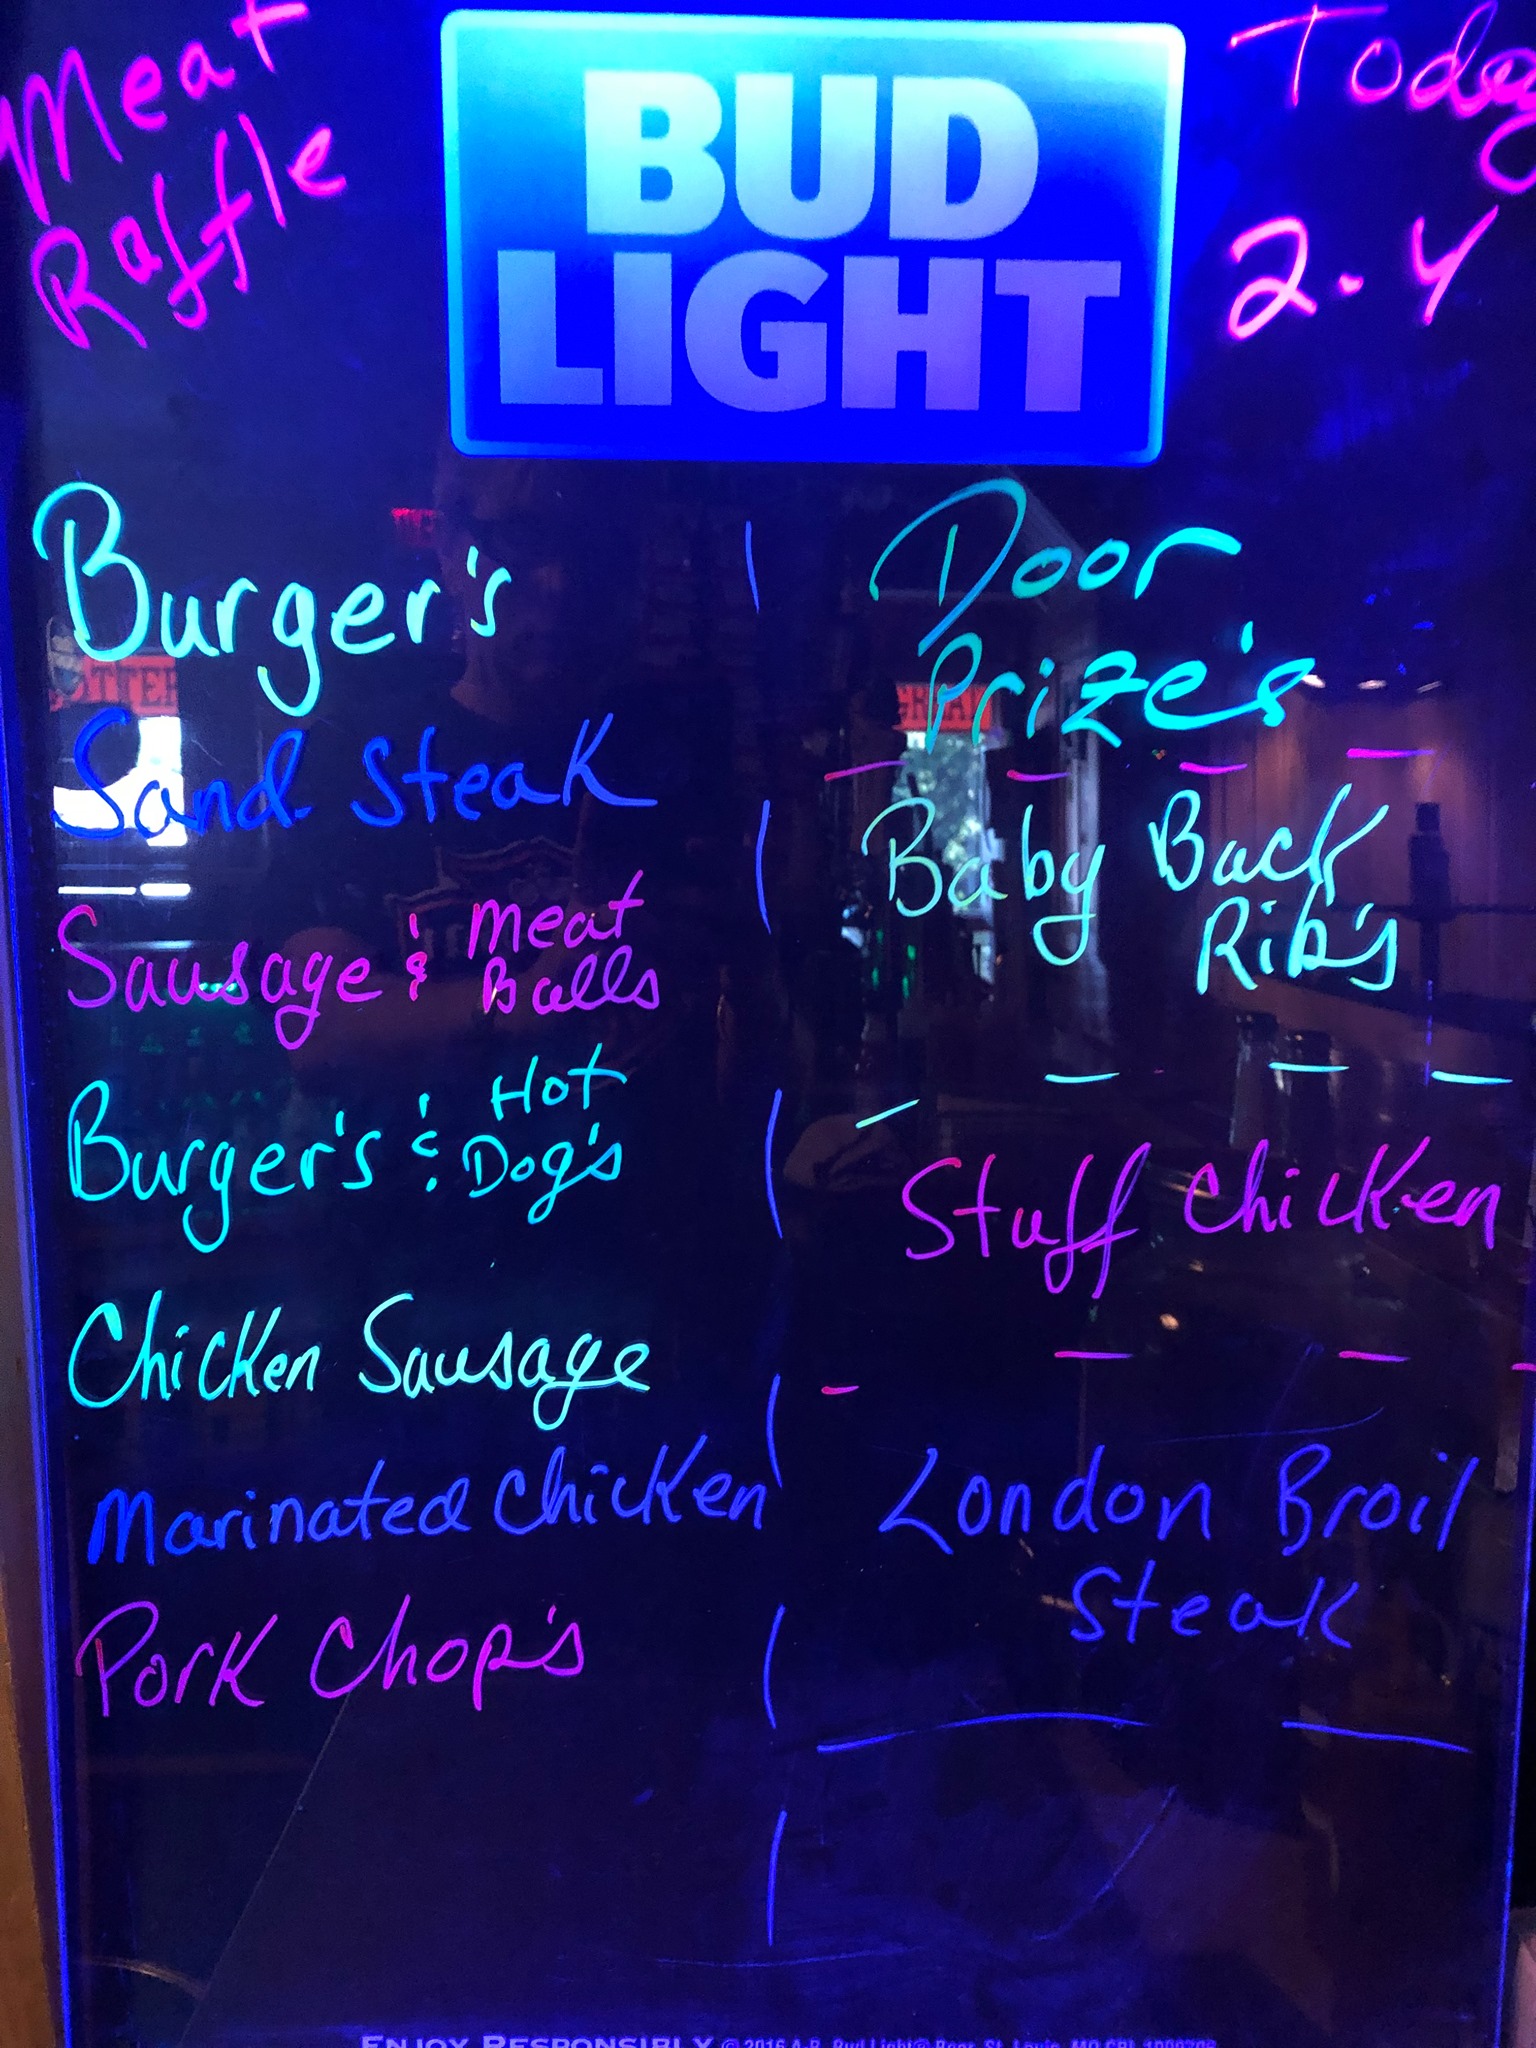 Meat
Raffle
BUD
LIGHT
Today
2-4
Burger's
Sand Steak
Sausage & Meat
Balls
Burger's & Hot
Dog's
Chicken Sausage
Marinated Chicken
Pork Chop's
Door
Prize's
Baby Back
Rib's
Stuff Chicken
London Broil
Steak
ENJOY RESPONSIBLY © 2016 A-B, Bud Light® Beer, St. Louis, MO